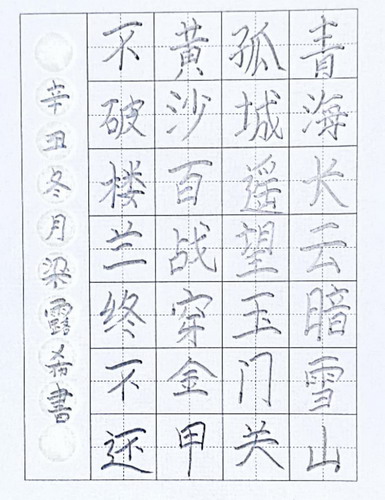 青海长云暗雪山
孤城遥望玉门关
黄沙百战穿金甲
不破楼兰终不还
辛丑冬月梁露希書